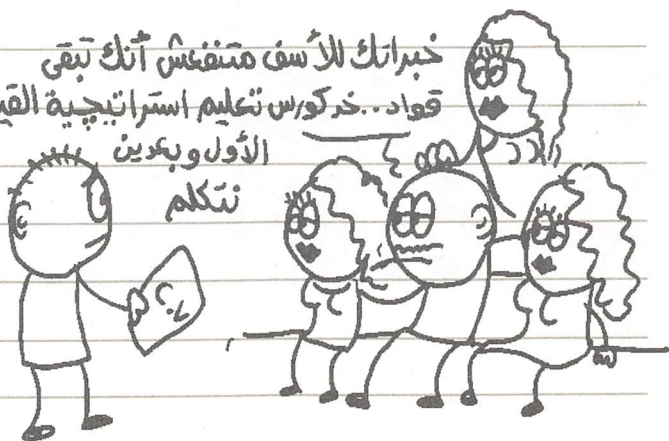 خبراتك للأسف متنفعش أنك تبقى
قواد..خد كورس تعليم استراتيجية
الأول وبعدين
نتكلم
C.V